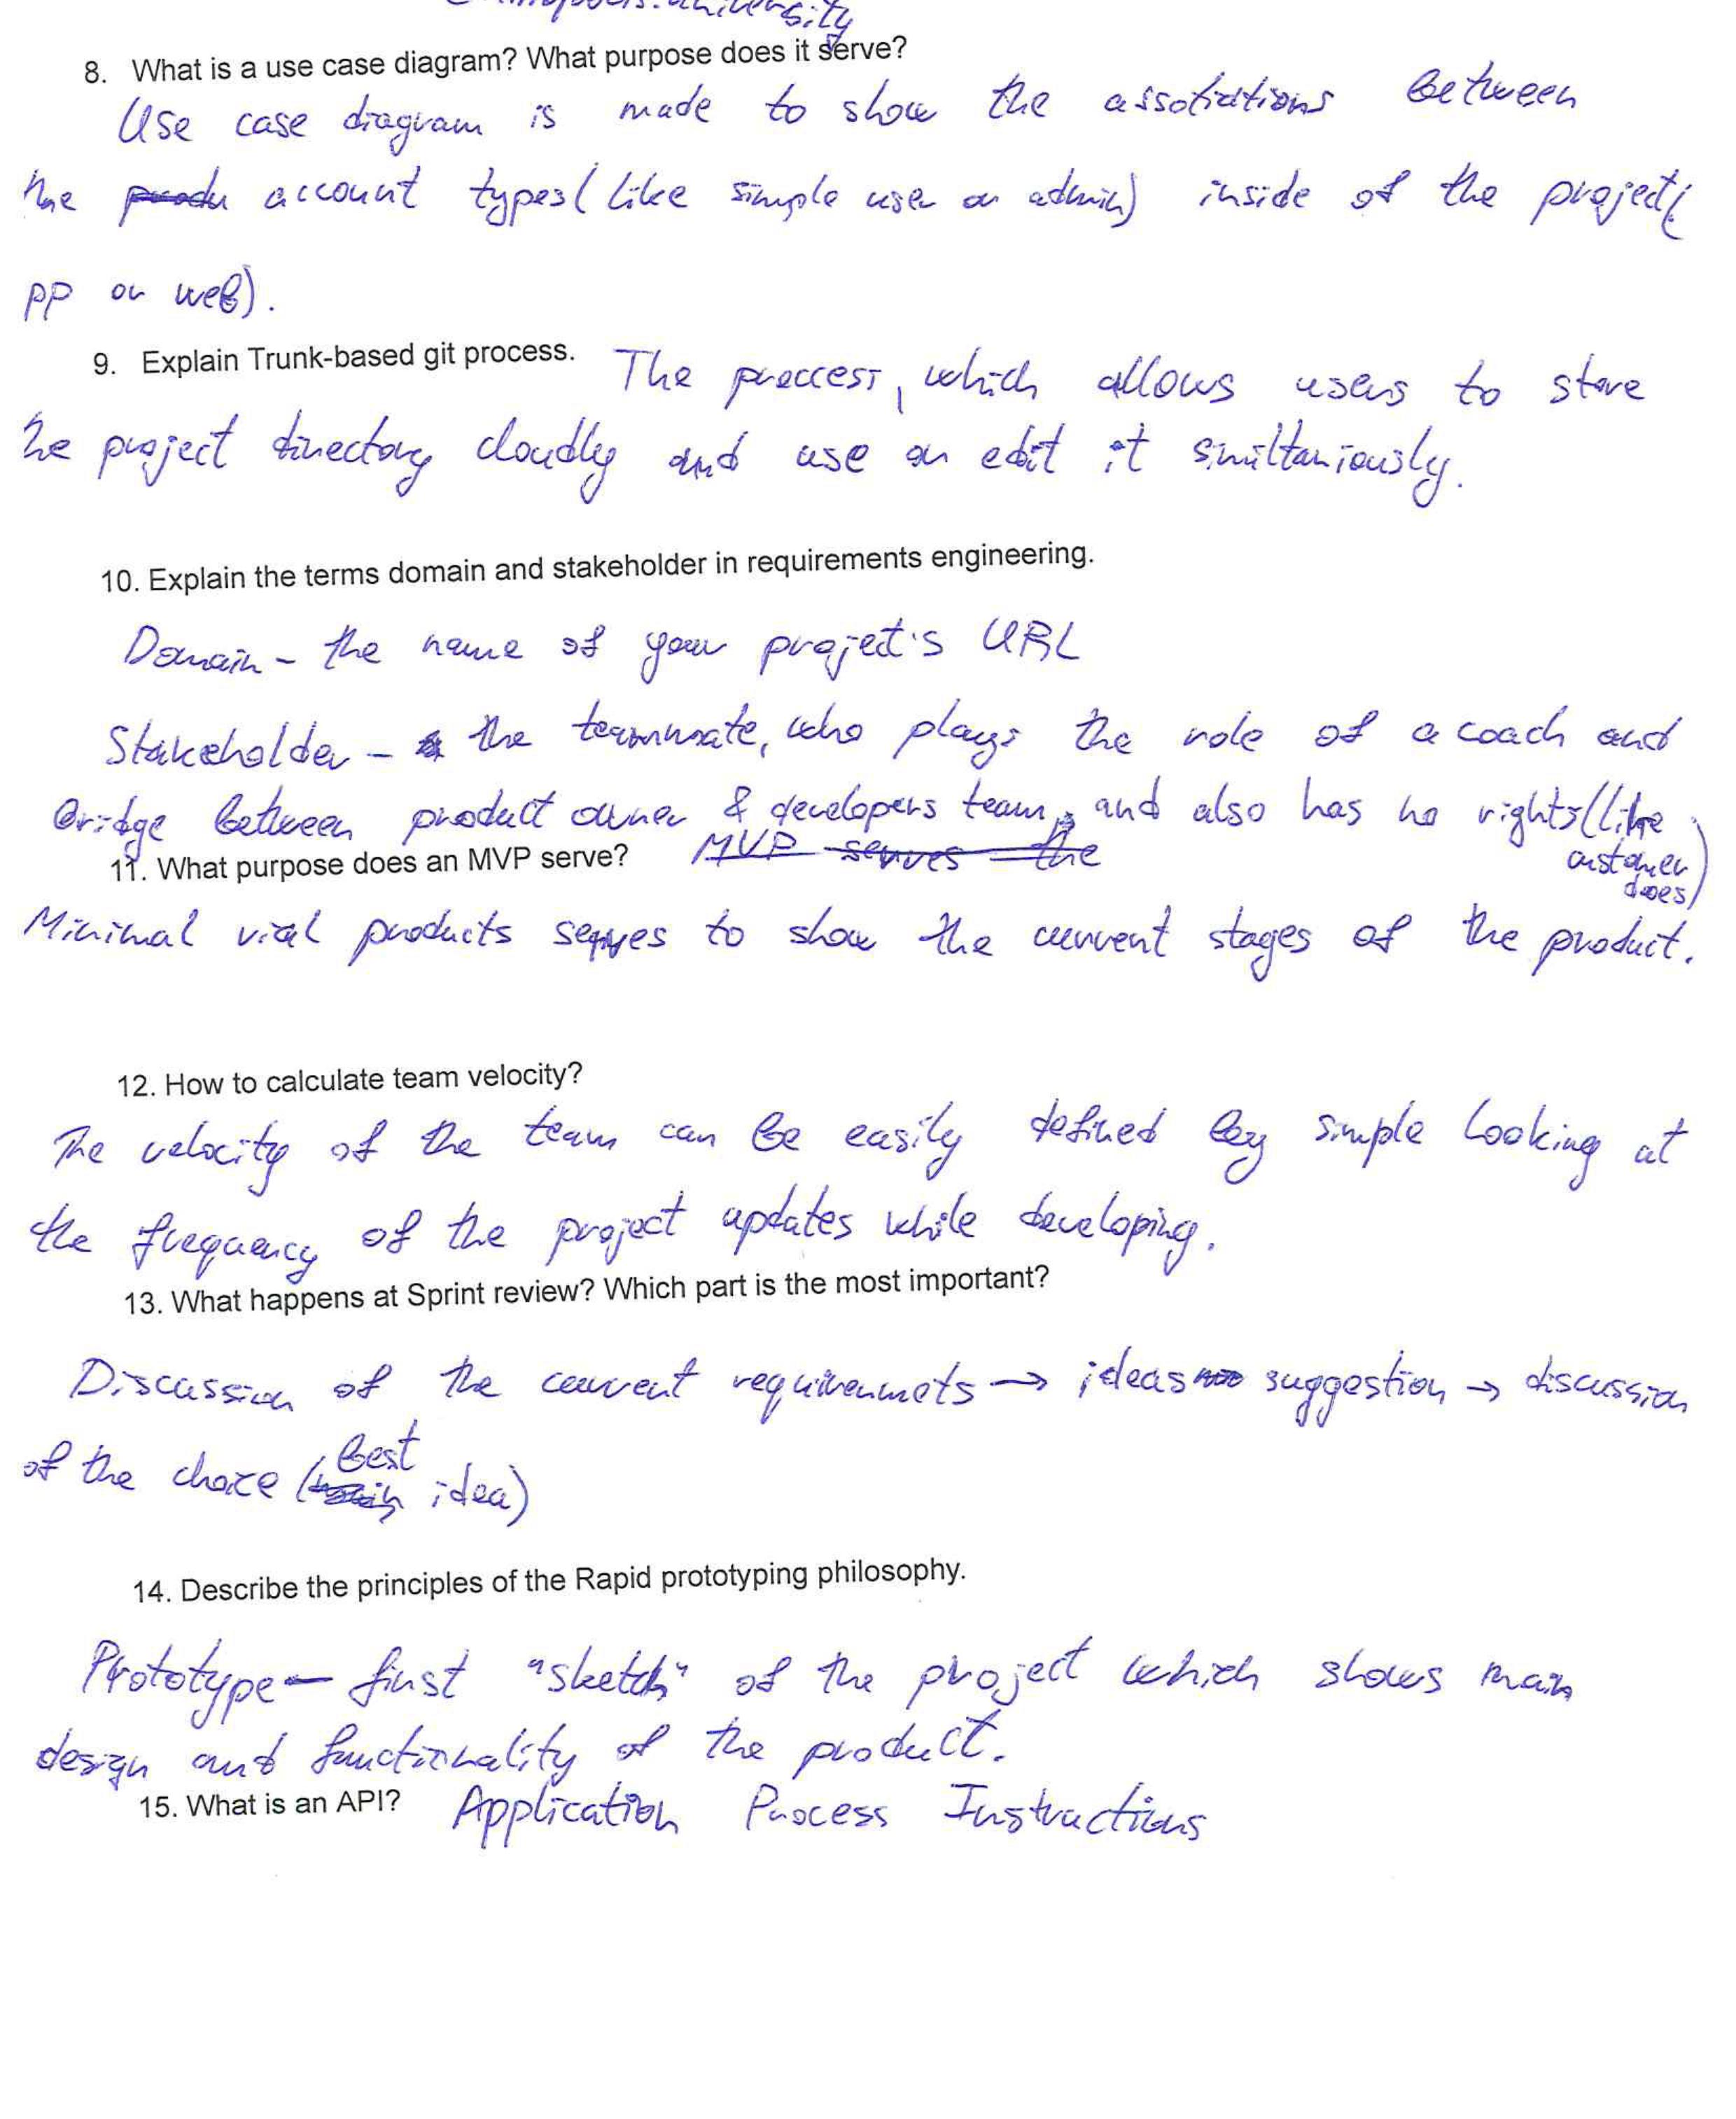 university
8. What is a use case diagram? What purpose does it serve?
Use case diagram is made to show the assotiations between
the produ account types (like simple user or admin) inside of the project (
pp or web).
9. Explain Trunk-based git process. The proccess, which allows users to store
he project directory cloudly and use or edit it similtaniously.
10. Explain the terms domain and stakeholder in requirements engineering.
Domain - the name of your project's URL
Stakeholder - the teammate, who plays the role of a coach and
bridge between product owner & developers team, and also has no rights (like customer does)
11. What purpose does an MVP serve? MVP serves the
Minimal vial products serves to show the current stages of the product.
12. How to calculate team velocity?
The velocity of the team can be easily defined by simple looking at
the frequency of the project updates while developing.
13. What happens at Sprint review? Which part is the most important?
Discussion of the current requirenmets → ideas suggestion → discussion
of the choice (best idea)
14. Describe the principles of the Rapid prototyping philosophy.
Prototype - first "sketch" of the project which shows main
design and functionality of the product.
15. What is an API? Application Process Instructions